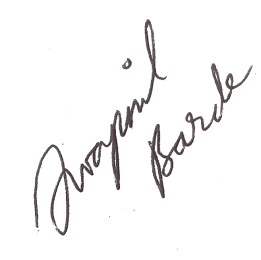 Swapnil
Barde